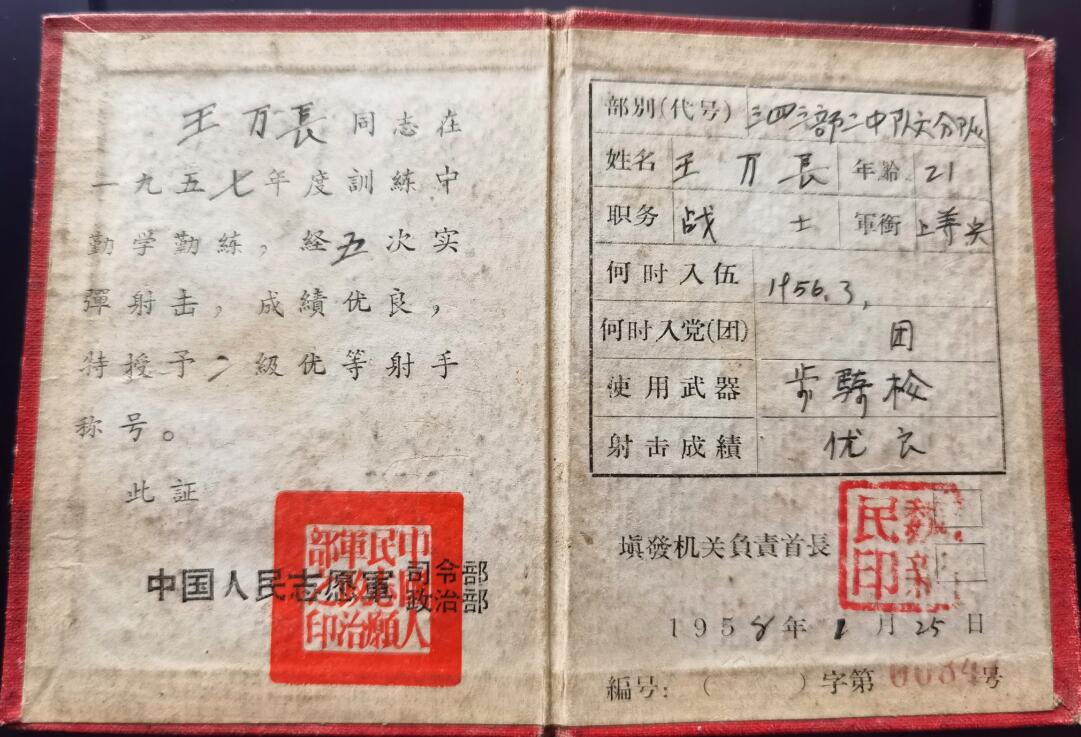 王万長同志在
一九五七年度訓練中
勤学勤練，経五次实
彈射击，成績优良，
特授予一級优等射手
称号。
此証
中国人民志愿軍司令部
政治部
中国人民志願軍政治部之印
部别(代号) 三四三部二中队六分队
姓名 王万長 年齡 21
职务 战士 軍衔 上等兵
何时入伍 1956.3,
何时入党(团) 团
使用武器 步騎枪
射击成績 优良
填發机关負責首長
魏 民印
1958年1月25日
編号:( )字第0084号